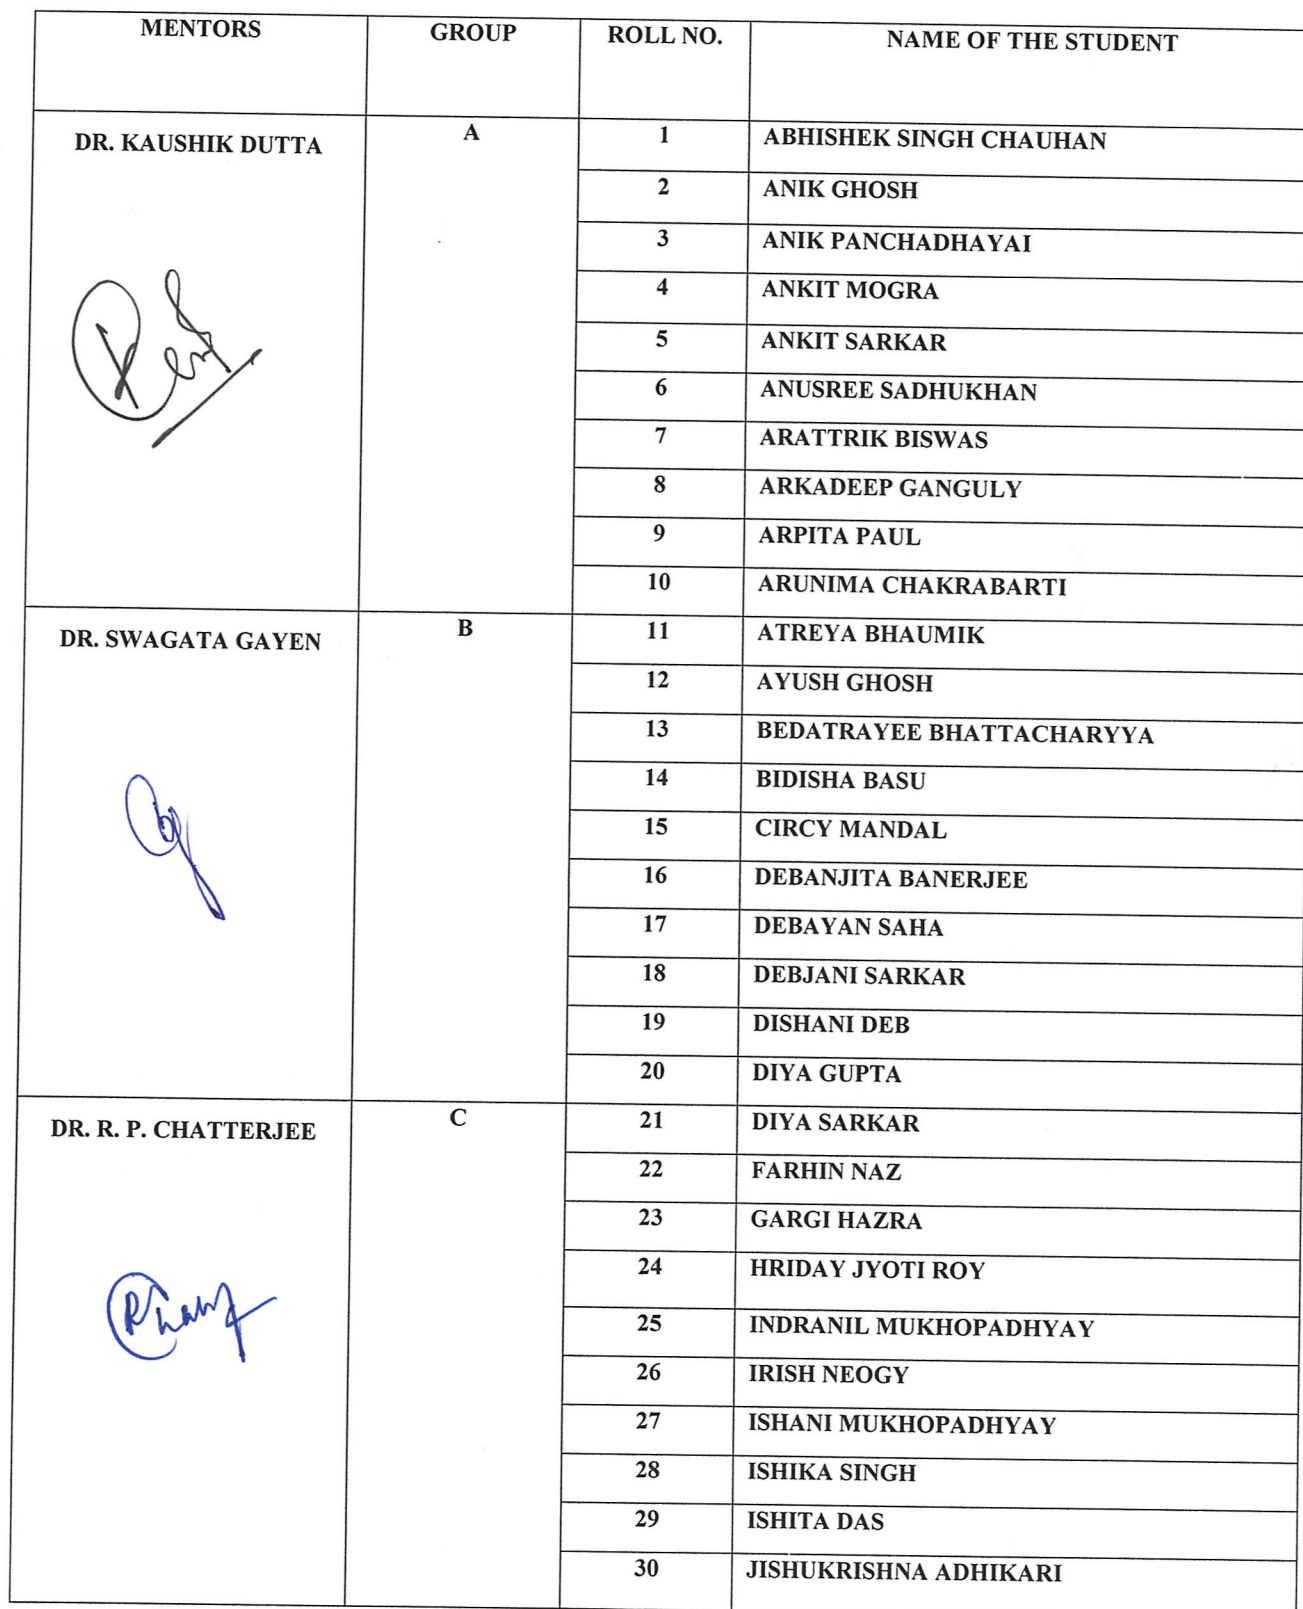 MENTORS GROUP ROLL NO. NAME OF THE STUDENT
DR. KAUSHIK DUTTA A 1 ABHISHEK SINGH CHAUHAN
2 ANIK GHOSH
3 ANIK PANCHADHAYAI
4 ANKIT MOGRA
5 ANKIT SARKAR
6 ANUSREE SADHUKHAN
7 ARATTRIK BISWAS
8 ARKADEEP GANGULY
9 ARPITA PAUL
10 ARUNIMA CHAKRABARTI
DR. SWAGATA GAYEN B 11 ATREYA BHAUMIK
12 AYUSH GHOSH
13 BEDATRAYEE BHATTACHARYYA
14 BIDISHA BASU
15 CIRCY MANDAL
16 DEBANJITA BANERJEE
17 DEBAYAN SAHA
18 DEBJANI SARKAR
19 DISHANI DEB
20 DIYA GUPTA
DR. R. P. CHATTERJEE C 21 DIYA SARKAR
22 FARHIN NAZ
23 GARGI HAZRA
24 HRIDAY JYOTI ROY
25 INDRANIL MUKHOPADHYAY
26 IRISH NEOGY
27 ISHANI MUKHOPADHYAY
28 ISHIKA SINGH
29 ISHITA DAS
30 JISHUKRISHNA ADHIKARI